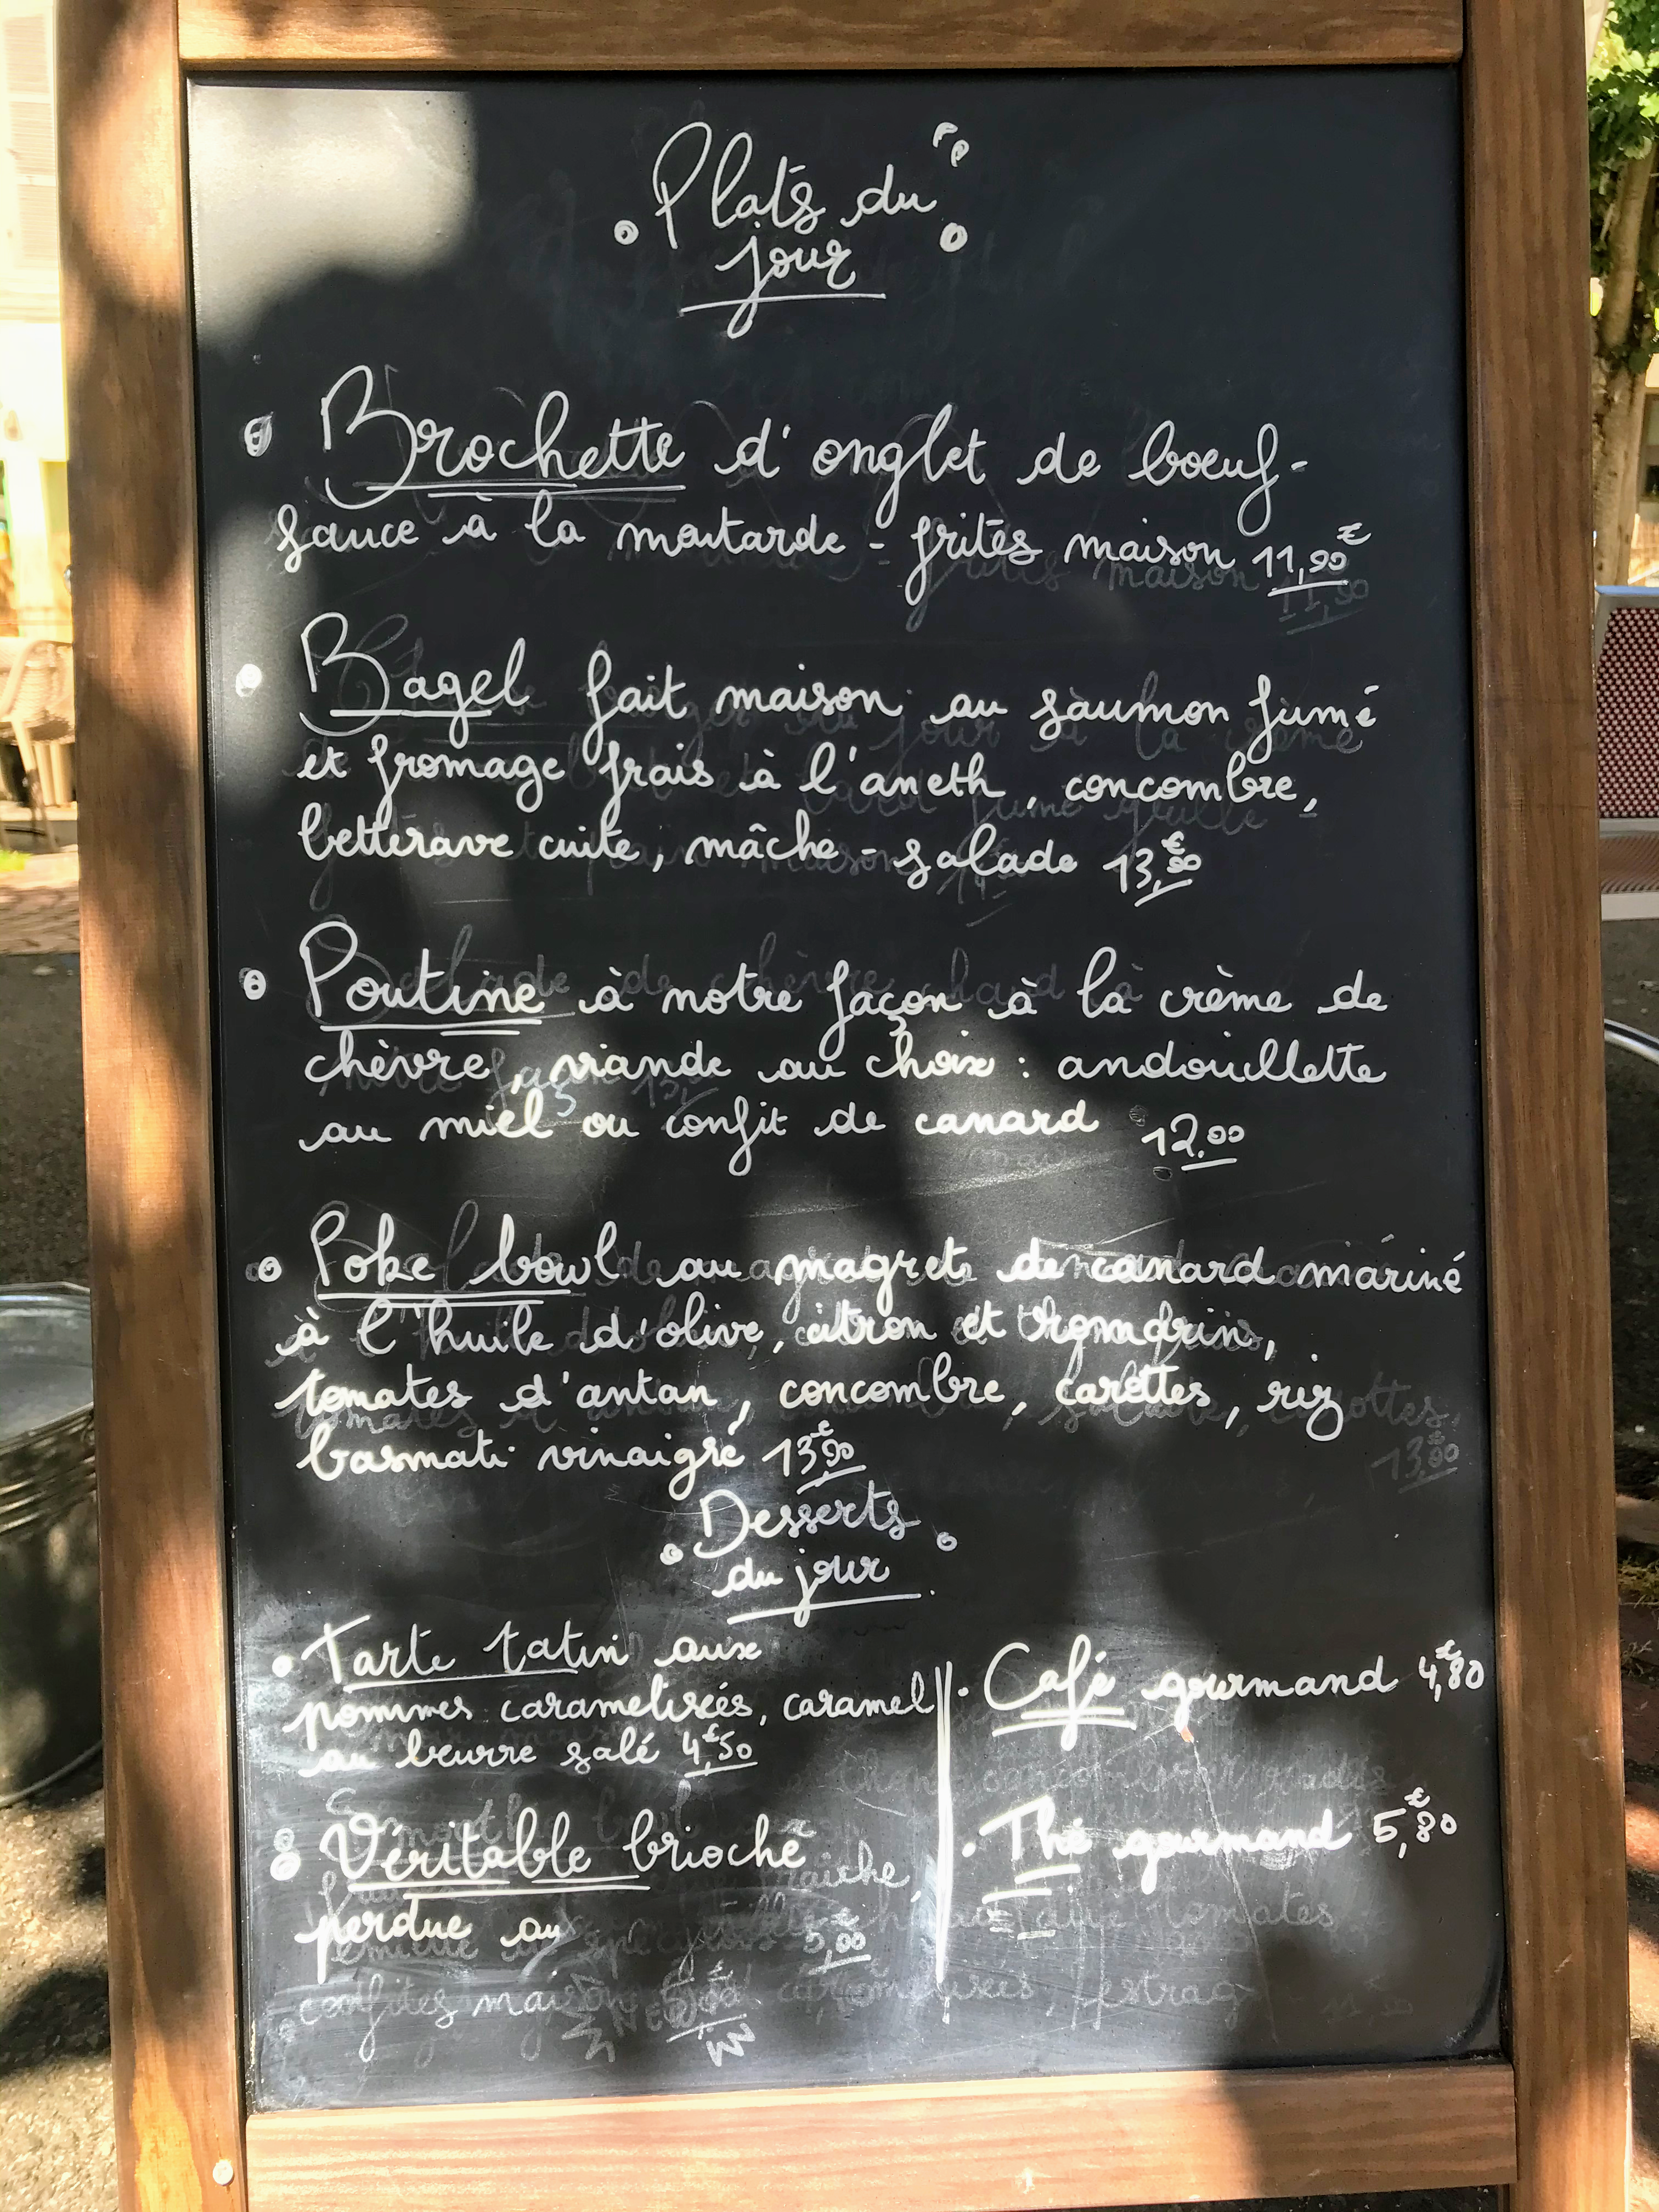 Plats du
jour
Brochette d'onglet de boeuf -
sauce à la moutarde - frites maison 11,90€
Bagel fait maison au saumon fumé
et fromage frais à l'aneth, concombre,
betterave cuite, mâche - salade 13,€
Poutine à notre façon à la crème de
chèvre, viande au choix : andouillette
au miel ou confit de canard 12.00
Poke bowl au magret de canard mariné
à l'huile d'olive, citron et
tomates d'antan, concombre, carottes, riz
basmati vinaigré 13,€90
Desserts
du jour
Tarte tatin aux
pommes caramelisées, caramel
au beurre salé 4,€50
Véritable brioche
perdue au
5,€00
Café gourmand 4,€80
Thé gourmand 5,€80